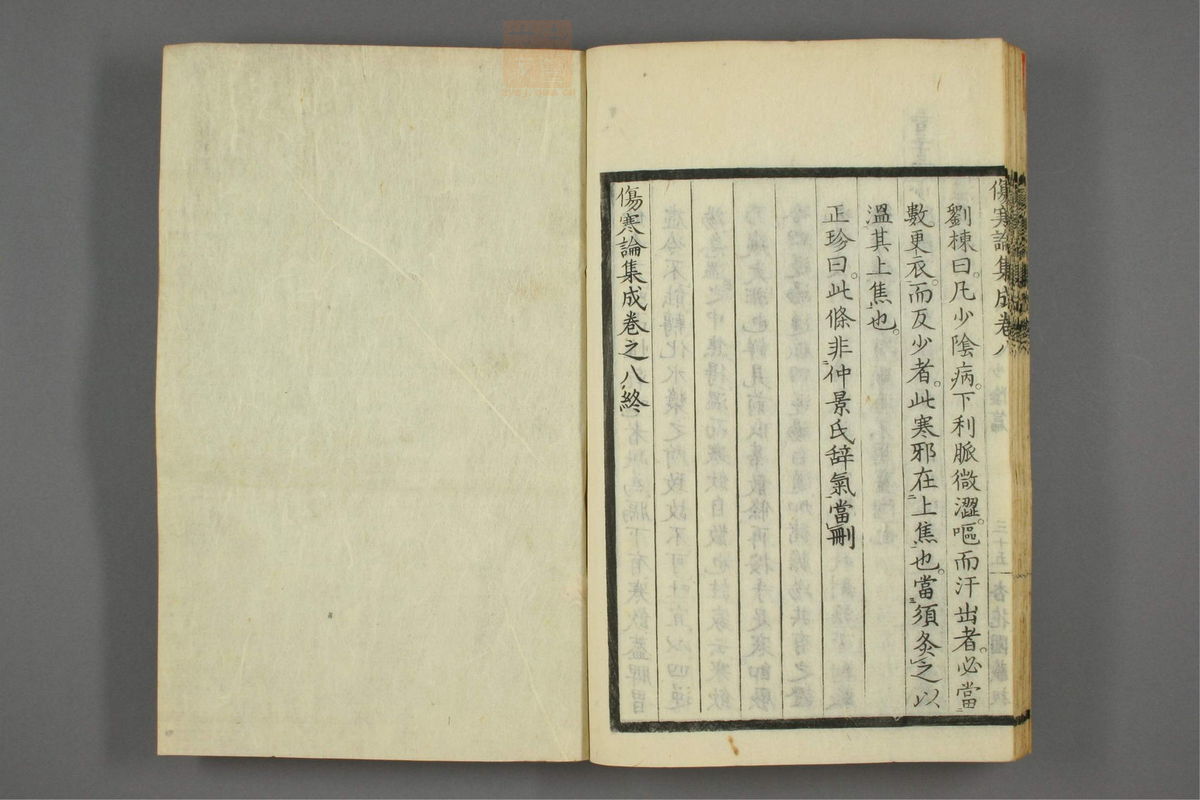 傷寒論集成卷八
劉棟曰。凡少陰病。下利脈微澀。嘔而汗出者。必當
數更衣。而反少者。此寒邪在上焦也。當須灸之以
溫其上焦也。
正珍曰。此條非仲景氏辭氣當刪
傷寒論集成卷之八終